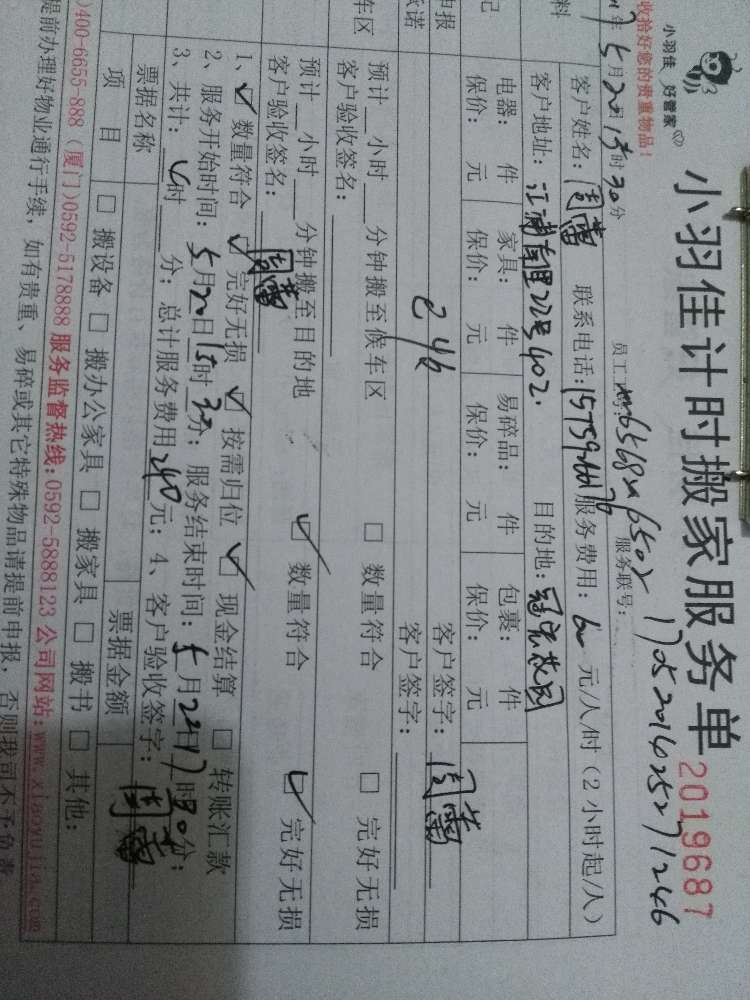 小羽佳 好管家
小羽佳计时搬家服务单 2019687
收拾好您的贵重物品!
员工工号: 服务联号: 1705201625271246
年5月22日15时30分
客户姓名: 周蕾 联系电话: 服务费用: 60元/人/时(2小时起/人)
客户地址: 江浦南里22号402. 目的地:
电器: 件 家具: 件 易碎品: 件 包裹: 件
保价: 元 保价: 元 保价: 元 保价: 元
客户签字: 周蕾
246 客户签字:
预计 小时 分钟搬至候车区 □ 数量符合 □ 完好无损
客户验收签名:
预计 小时 分钟搬至目的地 ☑ 数量符合 ☑ 完好无损
客户验收签名: 周蕾
1、☑ 数量符合 ☑ 完好无损 ☑ 按需归位 ☑ 现金结算 □ 转账汇款
2、服务开始时间: 5月22日15时30分; 服务结束时间: 5月22日17时30分;
3、共计: 时 分; 总计服务费用240元; 4、客户验收签字: 周蕾
票据名称 票据金额
项 目 □ 搬设备 □ 搬办公家具 □ 搬家具 □ 搬书 □ 其他:
)400-6655-888 (厦门)0592-5178888 服务监督热线:0592-5888123 公司网站:www.xiaoyujia.com
提前办理好物业通行手续, 如有贵重、易碎或其它特殊物品请提前申报, 否则我司不予负责